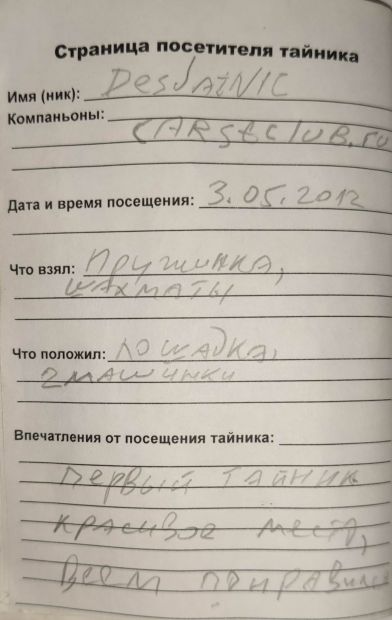 Страница посетителя тайника
Имя (ник): DesJatNIC
Компаньоны:
CARstclub.ru
Дата и время посещения: 3.05.2012
Что взял: Пружинка,
шахматы
Что положил: лошадка,
2 машинки
Впечатления от посещения тайника:
Первый тайник
красивое место,
Всем понравилось